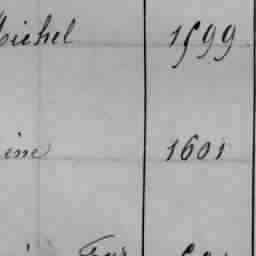 Michel 1599
ine 1601